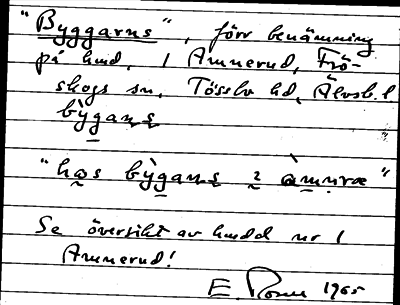 "Byggarns", förr benämning
på hmd. 1 Amnerud, Frö-
skogs sn, Tössbo hd, Älvsb. l
bỳgans
"has bỳgans 2 àmnræ"
Se översikt av hmdd nr 1
Amnerud!
E. Rosn 1965